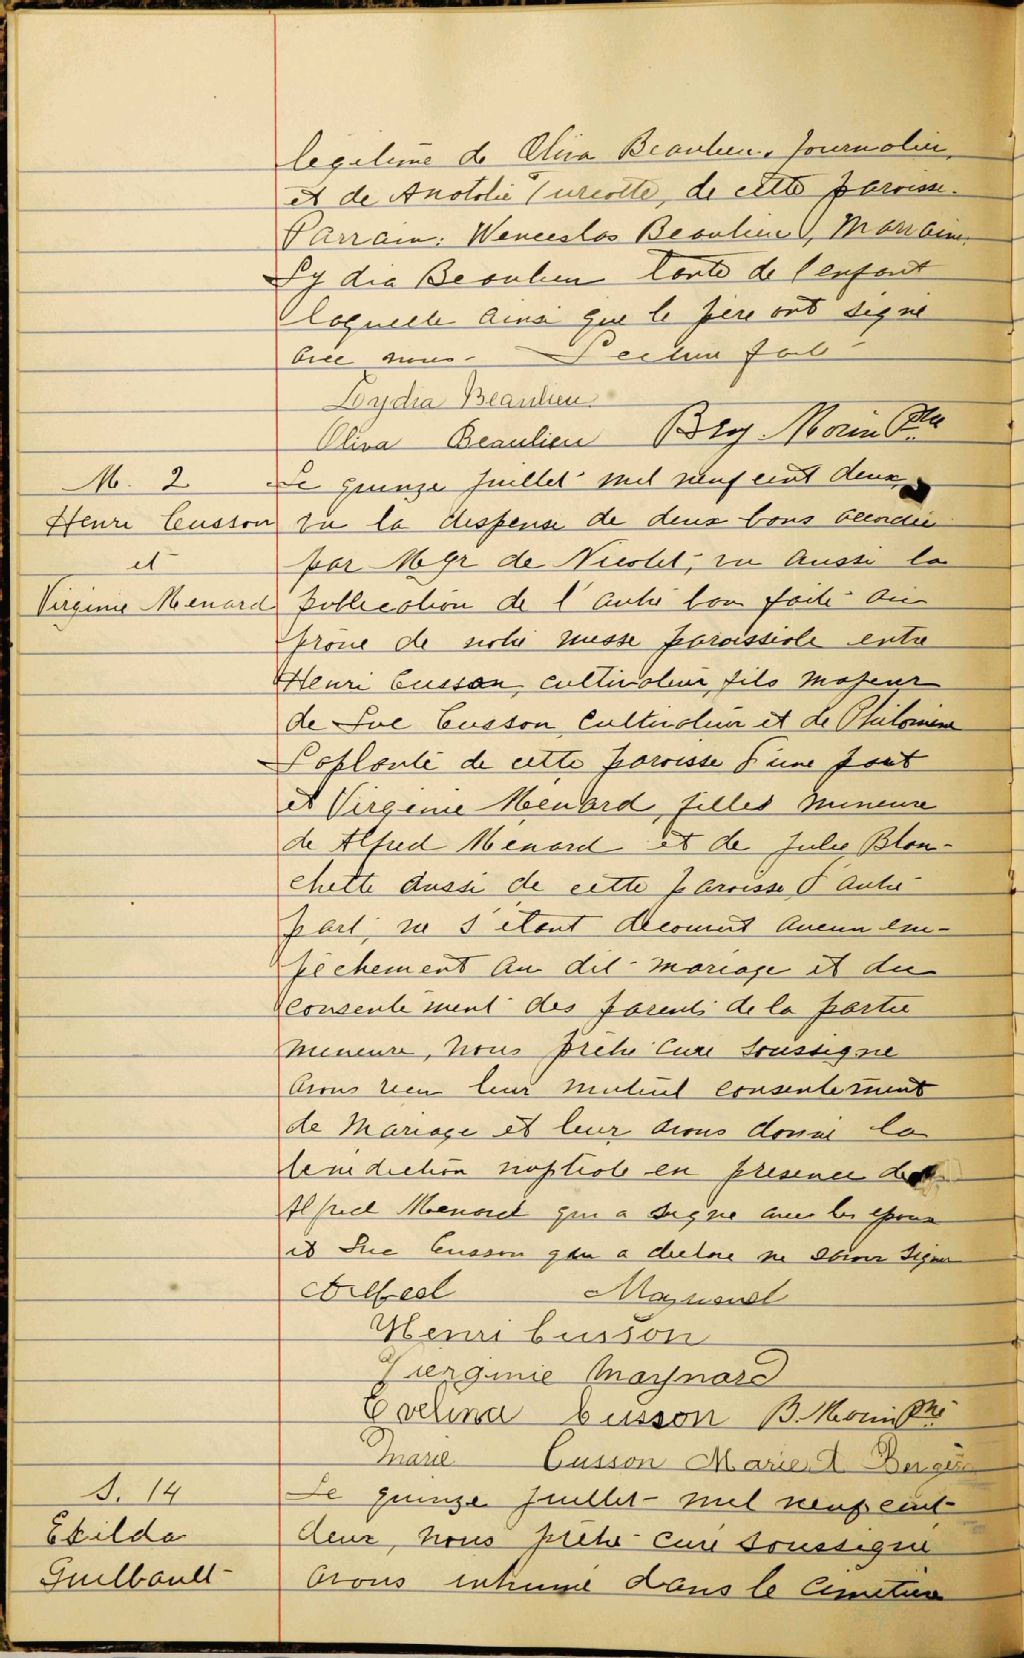 légitime de Oliva Beaulieu, journalier,
et de Anatolie Turcotte, de cette paroisse.
Parrain: Wenceslas Beaulieu, Marraine,
Lydia Beaulieu tante de l'enfant
laquelle ainsi que le père ont signé
avec nous. Lecture faite
Lydia Beaulieu
Oliva Beaulieu Bzy Morin Ptre
M. 2
Henri Cusson
et
Virginie Menard
Le quinze juillet mil neuf cent deux,
vu la dispense de deux bans accordée
par Mgr de Nicolet, vu aussi la
publication de l'autre ban faite au
prône de notre messe paroissiale entre
Henri Cusson, cultivateur, fils majeur
de Luc Cusson, cultivateur et de Philomène
Laplante de cette paroisse d'une part
et Virginie Ménard, filles mineure
de Alfred Ménard et de Julie Blan-
chette aussi de cette paroisse, d'autre
part, ne s'étant découvert aucun em-
pêchement au dit mariage et du
consentement des parents de la partie
mineure, nous prêtre curé soussigné
avons reçu leur mutuel consentement
de mariage et leur avons donné la
bénédiction nuptiale en présence de
Alfred Menard qui a signé avec les époux
et Luc Cusson qui a déclaré ne savoir signer
Alfred Maynard
Henri Cusson
Vierginie Maynard
Evelina Cusson B. Morin Ptre
Marie Cusson Marie A Bergeron
S. 14
Exilda
Guilbault
Le quinze juillet mil neuf cent
deux, nous prêtre curé soussigné
avons inhumé dans le cimetière